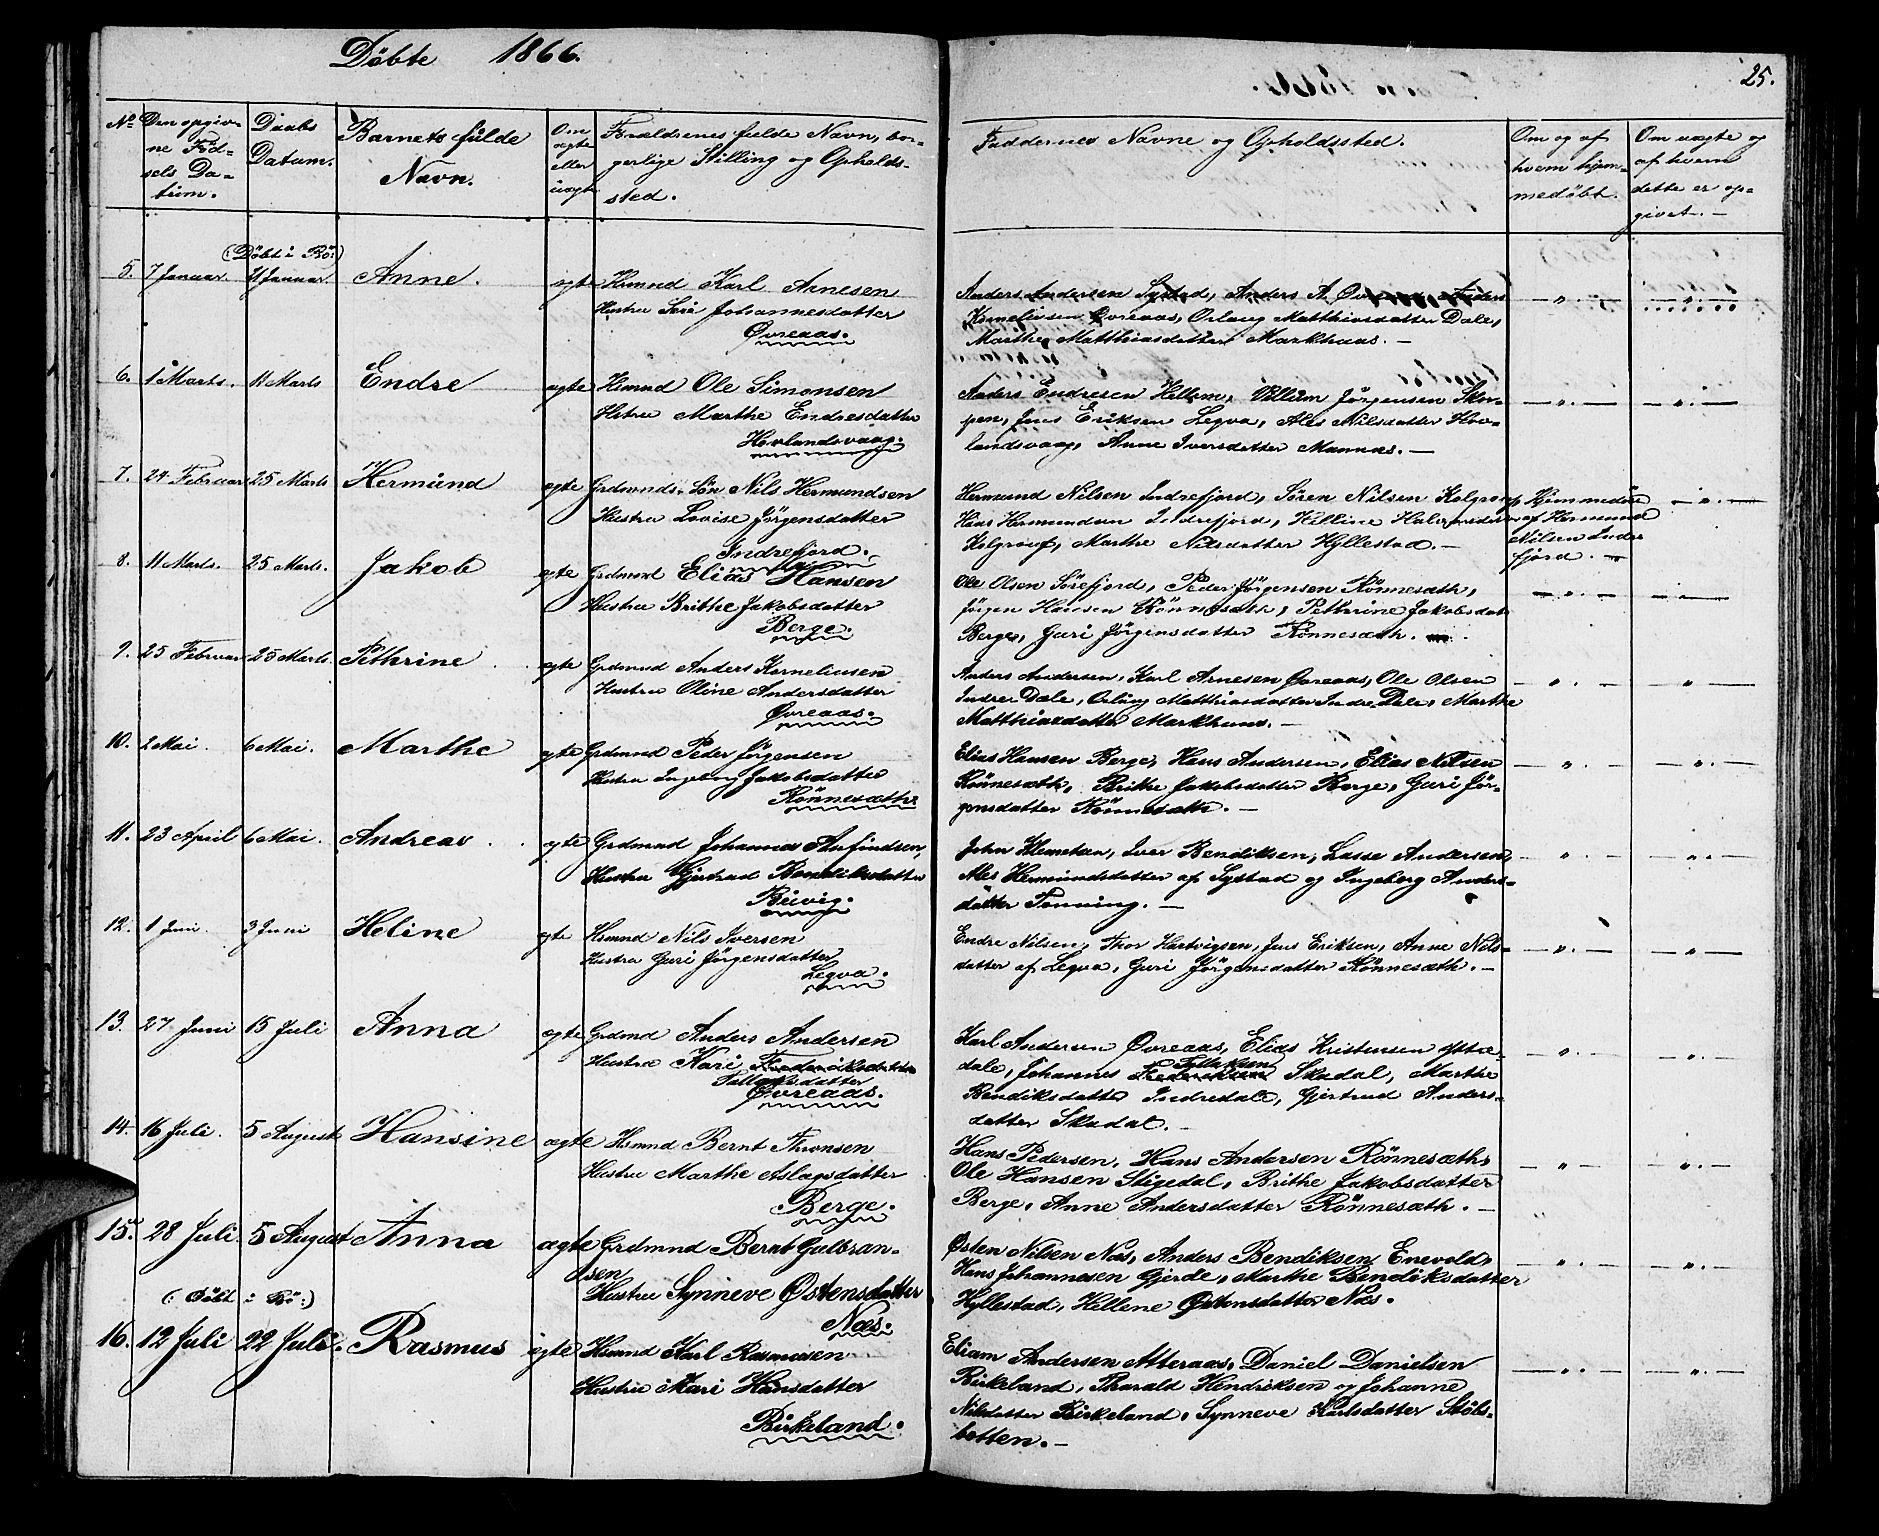 Döbte 1866.
25.
No
Den opgiv-
ne Föd-
sels Da-
tum.
Daabs
Datum.
Barnets fulde
Navn.
Om
ægte
eller
uægte
Forældrenes fulde Navn, bor-
gerlige Stilling og Opholds-
sted.
Faddernes Navne og Opholdssted.
Om og af
hvem hjem-
medöbt.
Om uægte og
af hvem
dette er op-
givet. -
(Döbt i Bö:)
5. 7 Januar. 21 Januar. Anne. ægte Hsmnd Karl Arnesen
Hustru Siri Johannesdatter
Øvreaas.
Anders Andersen Systad, Anders A. Anders
Korneliusen Øvreaas, Orlaug Matthiasdatter Dale,
Marthe Matthiasdatter Markhuus. -
6. 1 Marts. 11 Marts Endre ægte Hsmnd Ole Simonsen
Hstru Marthe Endresdatter
Hovlandsvaag.
Anders Endresen Hellem, Villum Jörgensen Skor-
pen, Jens Eriksen Legva, Ales Nilsdatter Hov-
landsvaag, Anne Iversdatter Mannes. -
7. 24 Februar 25 Marts Hermund ægte Grdmnds. Sön Nils Hermundsen
Hustru Lovise Jörgensdatter
Indrefjord.
Hermund Nilsen Indrefjord, Sören Nilsen Kolgrouf,
Hans Hermundsen Indrefjord, Helline
Kolgrouf, Marthe Nilsdatter Hyllestad. -
Hjemmedöbt
af Hermund
Nilsen Indre
fjord. -
8. 11 Marts. 25 Marts. Jakob ægte Grdmnd Elias Hansen
Hustru Brithe Jakobsdatter
Berge.
Ole Olsen Sörefjord, Peder Jörgensen Rönnesæth,
Jörgen Hansen Rönnesæth, Pethrine Jakobsdat
Berge, Guri Jörgensdatter Rönnesæth.
9. 25 Februar 25 Marts. Pethrine ægte Grdmnd Anders Korneliusen
Hustru Oline Andersdatter
Øvreaas.
Anders Andersen, Karl Arnesen Øvreaas, Ole Olsen
Indre Dale, Orlaug Matthiasdatter Indre Dale, Marthe
Matthiasdatter Markhuus. -
10. 2 Mai. 6 Mai. Marthe ægte Grdmnd Peder Jörgensen
Hustru Ingeborg Jakobsdatter
Rönnesæth
Elias Hansen Berge, Hans Andersen, Elias Nilsen
Rönnesæth, Brithe Jakobsdatter Berge, Guri Jör-
gensdatter Rönnesæth. -
11. 23 April 6 Mai. Andreas ægte Grdmnd Johannes Anfindsen,
Hustru Gjertrud Bendiksdatter
Beivig.
John Klemetsen, Iver Bendiksen, Lasse Andersen,
Ales Hermundsdatter af Systad og Ingeborg Anders-
datter Tenning. -
12. 1 Juni. 3 Juni Heline ægte Hsmnd Nils Iversen
Hustru Guri Jörgensdatter
Legva.
Endre Nilsen, Thor Hartvigsen, Jens Eriksen, Anne Nils-
datter af Legva, Guri Jörgensdatter Rönnesæth. -
13. 27 Juni 15 Juli Anna ægte Grdmnd Anders Andersen
Hustru Kari Frederiksdatter
Sallaksdatter
Øvreaas.
Karl Andersen Øvreaas, Elias Kristensen
dale, Johannes Frederiksen Sallaksen Skadal, Marthe
Bendiksdatter Indredale, Gjertrud Anders-
datter Skadal. -
14. 16 Juli. 5 August Hansine ægte Hsmnd Bernt Thronsen
Hustru Marthe Aslagsdatter
Berge.
Hans Pedersen, Hans Andersen Rönnesæth,
Ole Hansen Stigedal, Brithe Jakobsdatter
Berge, Anne Andersdatter Rönnesæth. -
15. 28 Juli. 5 August Anna ægte Grdmnd Bernt Gulbran-
sen
Hustru Synneve Østensdatter
Næs.
Østen Nilsen Næs, Anders Bendiksen Enevold,
Hans Johannesen Gjerde, Marthe Bendiksdatter
Hyllestad, Hellene Østensdatter Næs.
(: Döbt i Bö:)
16. 12 Juli 22 Juli. Rasmus ægte Hsmnd Karl Rasmusen
Hustru Mari Hansdatter
Birkeland.
Eliam Andersen Atteraas, Daniel Danielsen
Birkeland, Tharald Hendriksen og Johanne
Nilsdatter Birkeland, Synneve Karlsdatter Stöbs-
botten. -